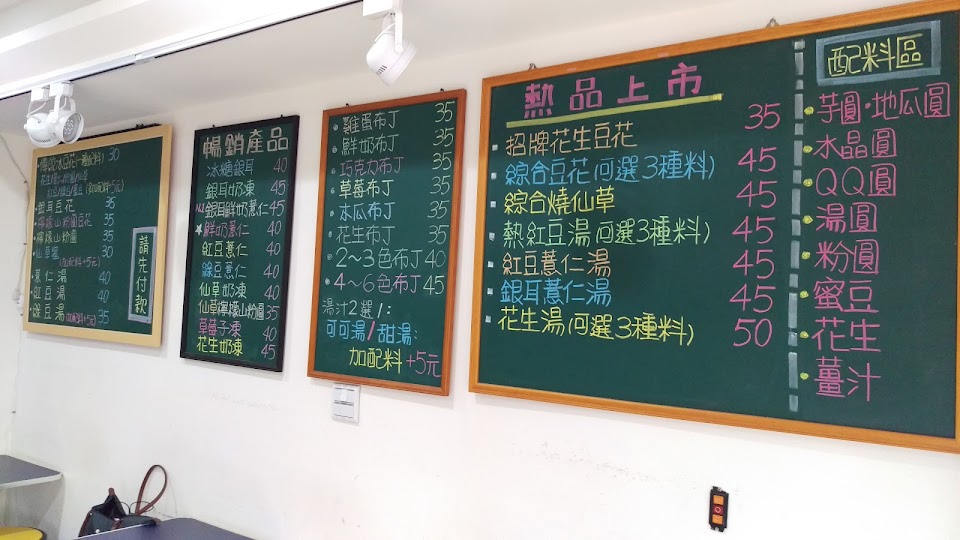 傳統Q冰豆花(一種配料) 30
銀耳豆花 35
檸檬山粉圓豆花 35
檸檬山粉圓 35
仙草蜜 30
(加配料+5元)
薏仁湯 40
紅豆湯 40
綠豆湯(加配料+5元) 35
請先付款
暢銷產品
冰糖銀耳 40
銀耳奶凍 40
銀耳鮮奶薏仁 45
鮮奶薏仁 40
紅豆薏仁 40
綠豆薏仁 40
仙草奶凍 40
仙草檸檬山粉圓 35
草莓子凍 40
花生奶凍 45
雞蛋布丁 35
鮮奶布丁 35
巧克力布丁 35
草莓布丁 35
木瓜布丁 35
花生布丁 35
2~3色布丁 40
4~6色布丁 45
湯汁2選1:
可可湯/甜湯:
加配料+5元
熱品上市
招牌花生豆花 35
綜合豆花(可選3種料) 45
綜合燒仙草 45
熱紅豆湯(可選3種料) 45
紅豆薏仁湯 45
銀耳薏仁湯 45
花生湯(可選3種料) 50
配料區
芋圓·地瓜圓
水晶圓
QQ圓
湯圓
粉圓
蜜豆
花生
薑汁